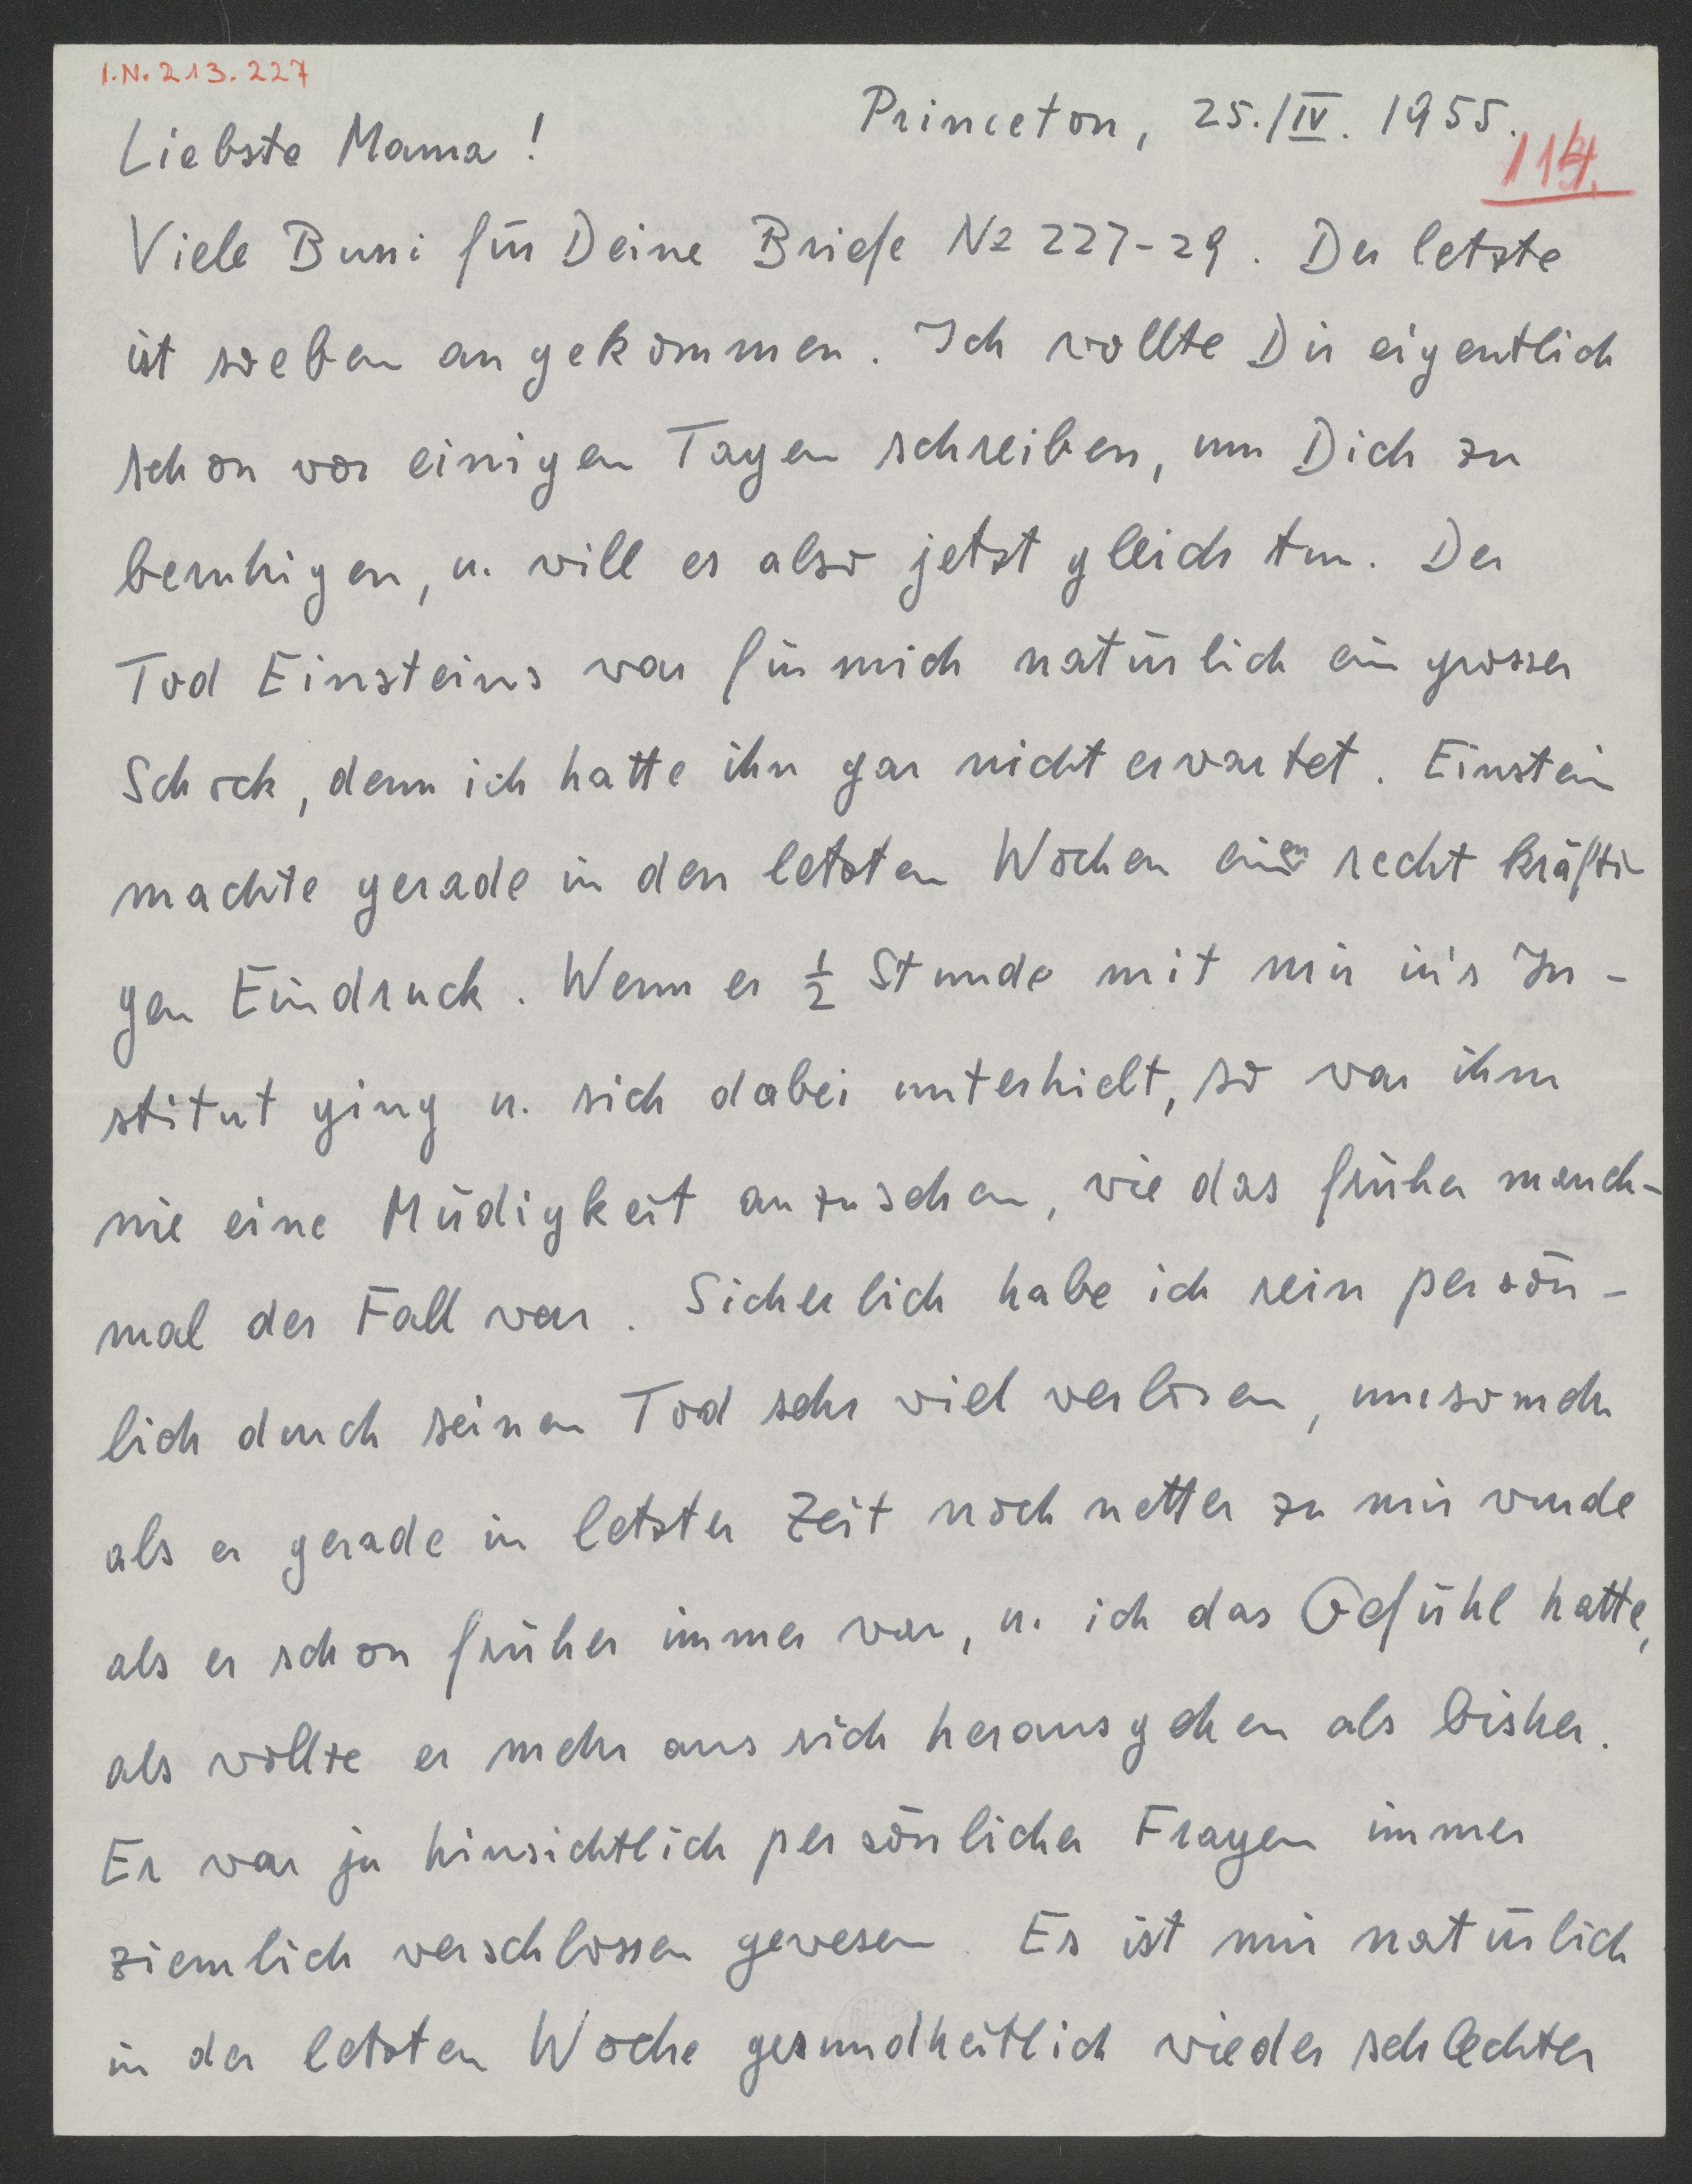 I.N. 213.227
Princeton, 25./IV. 1955.
114.
Liebste Mama!
Viele Bussi für Deine Briefe No 227-29. Der letzte
ist soeben angekommen. Ich wollte Dir eigentlich
schon vor einigen Tagen schreiben, um Dich zu
beruhigen, u. will es also jetzt gleich tun. Der
Tod Einsteins war für mich natürlich ein grosser
Schock, denn ich hatte ihn gar nicht erwartet. Einstein
machte gerade in den letzten Wochen einen recht kräfti-
gen Eindruck. Wenn er ½ Stunde mit mir in's In-
stitut ging u. sich dabei unterhielt, so war ihm
nie eine Müdigkeit anzusehen, wie das früher manch-
mal der Fall war. Sicherlich habe ich rein persön-
lich durch seinen Tod sehr viel verloren, umsomehr
als er gerade in letzter Zeit noch netter zu mir wurde
als er schon früher immer war, u. ich das Gefühl hatte,
als wollte er mehr aus sich herausgehen als bisher.
Er war ja hinsichtlich persönlicher Fragen immer
ziemlich verschlossen gewesen. Es ist mir natürlich
in der letzten Woche gesundheitlich wieder schlechter